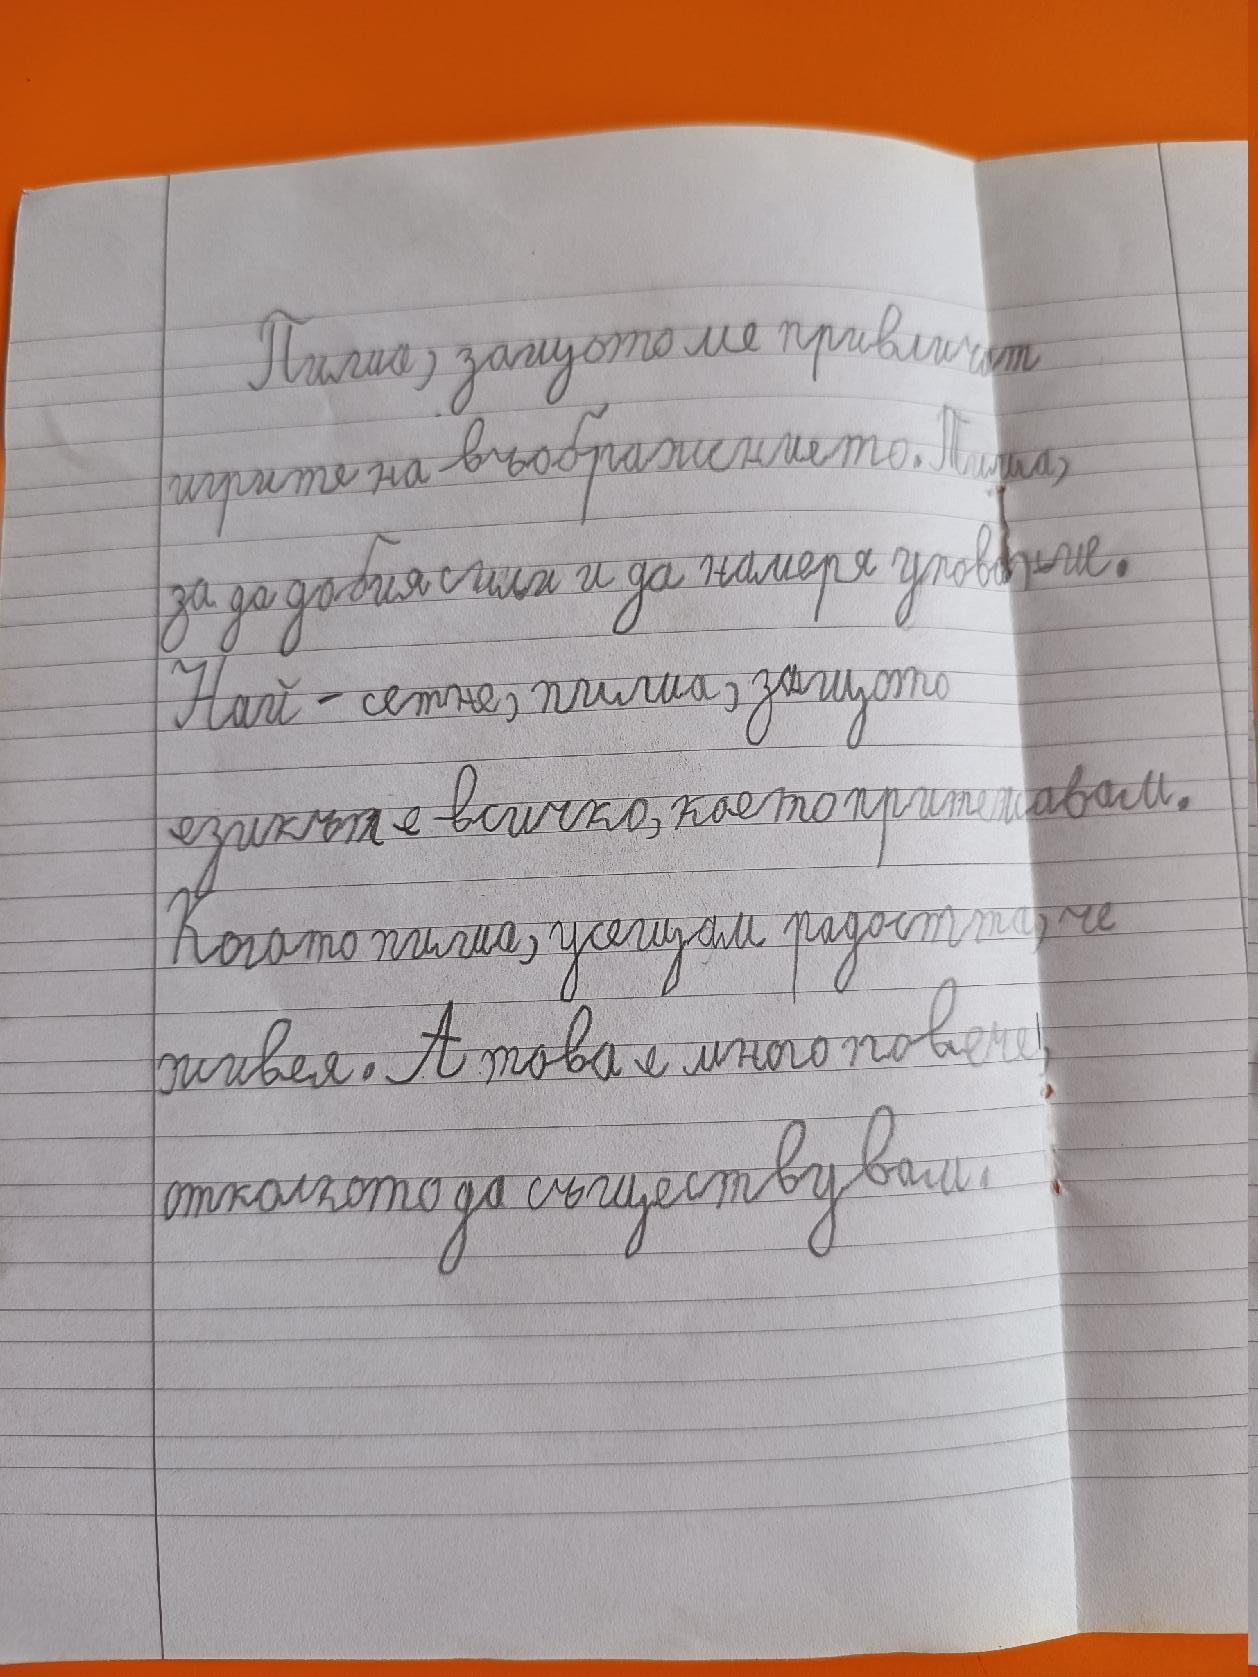 Пиша, защото ме привличат
игрите на въображението. Пиша,
за да добия сили и да намеря упование.
Най - сетне, пиша, защото
езикът е всичко, което притежавам.
Когато пиша, усещам радостта, че
живея. А това е много повече,
отколкото да съществувам.